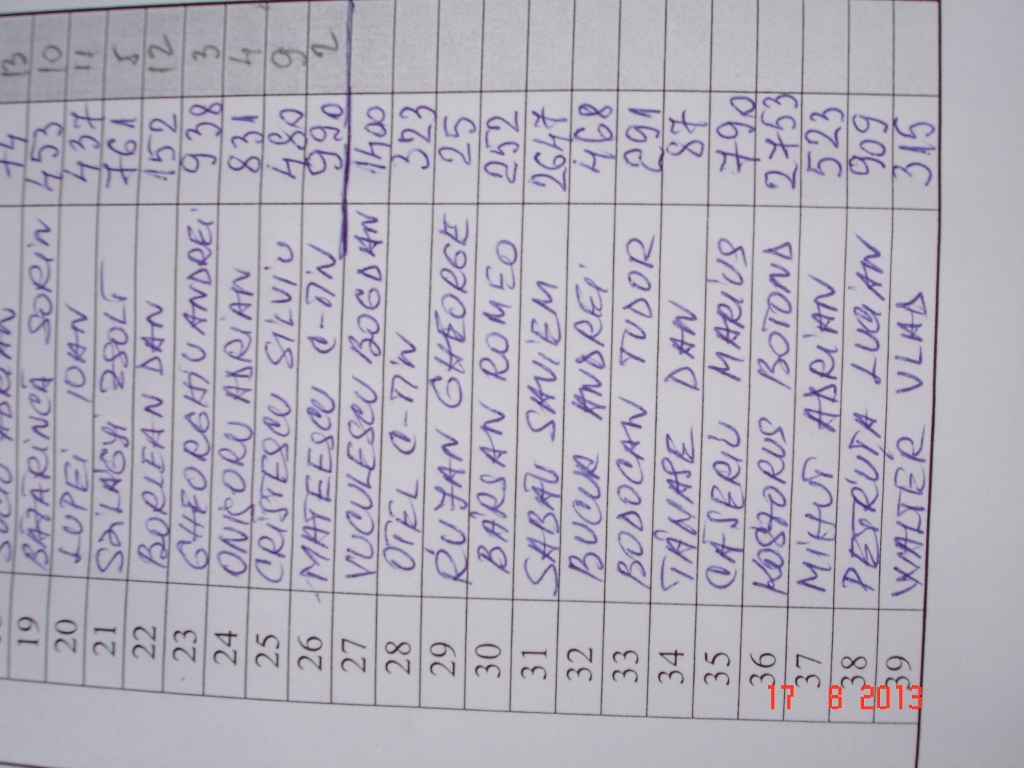 19 BATARINCĂ SORIN 453 10
20 LUPEI IOAN 437 11
21 SZILAGYI ZSOLT 761 5
22 BORLEAN DAN 152 12
23 GHEORGHIU ANDREI 938 3
24 ONISORU ADRIAN 831 4
25 CRISTESCU SILVIU 480 9
26 MATEESCU C-TIN 990 2
27 VUCULESCU BOGDAN 1400
28 OTEL C-TIN 323
29 RUJAN GHEORGE 25
30 BÂRSAN ROMEO 252
31 SABAU SAVIEM 2647
32 BUCUR ANDREI 468
33 BODOCAN TUDOR 291
34 TĂNASE DAN 87
35 CASERIU MARIUS 790
36 KOSZTORUS BOTOND 2753
37 MIHUT ADRIAN 523
38 PETRUȚA LUCIAN 909
39 WALTER VLAD 315
17 8 2013